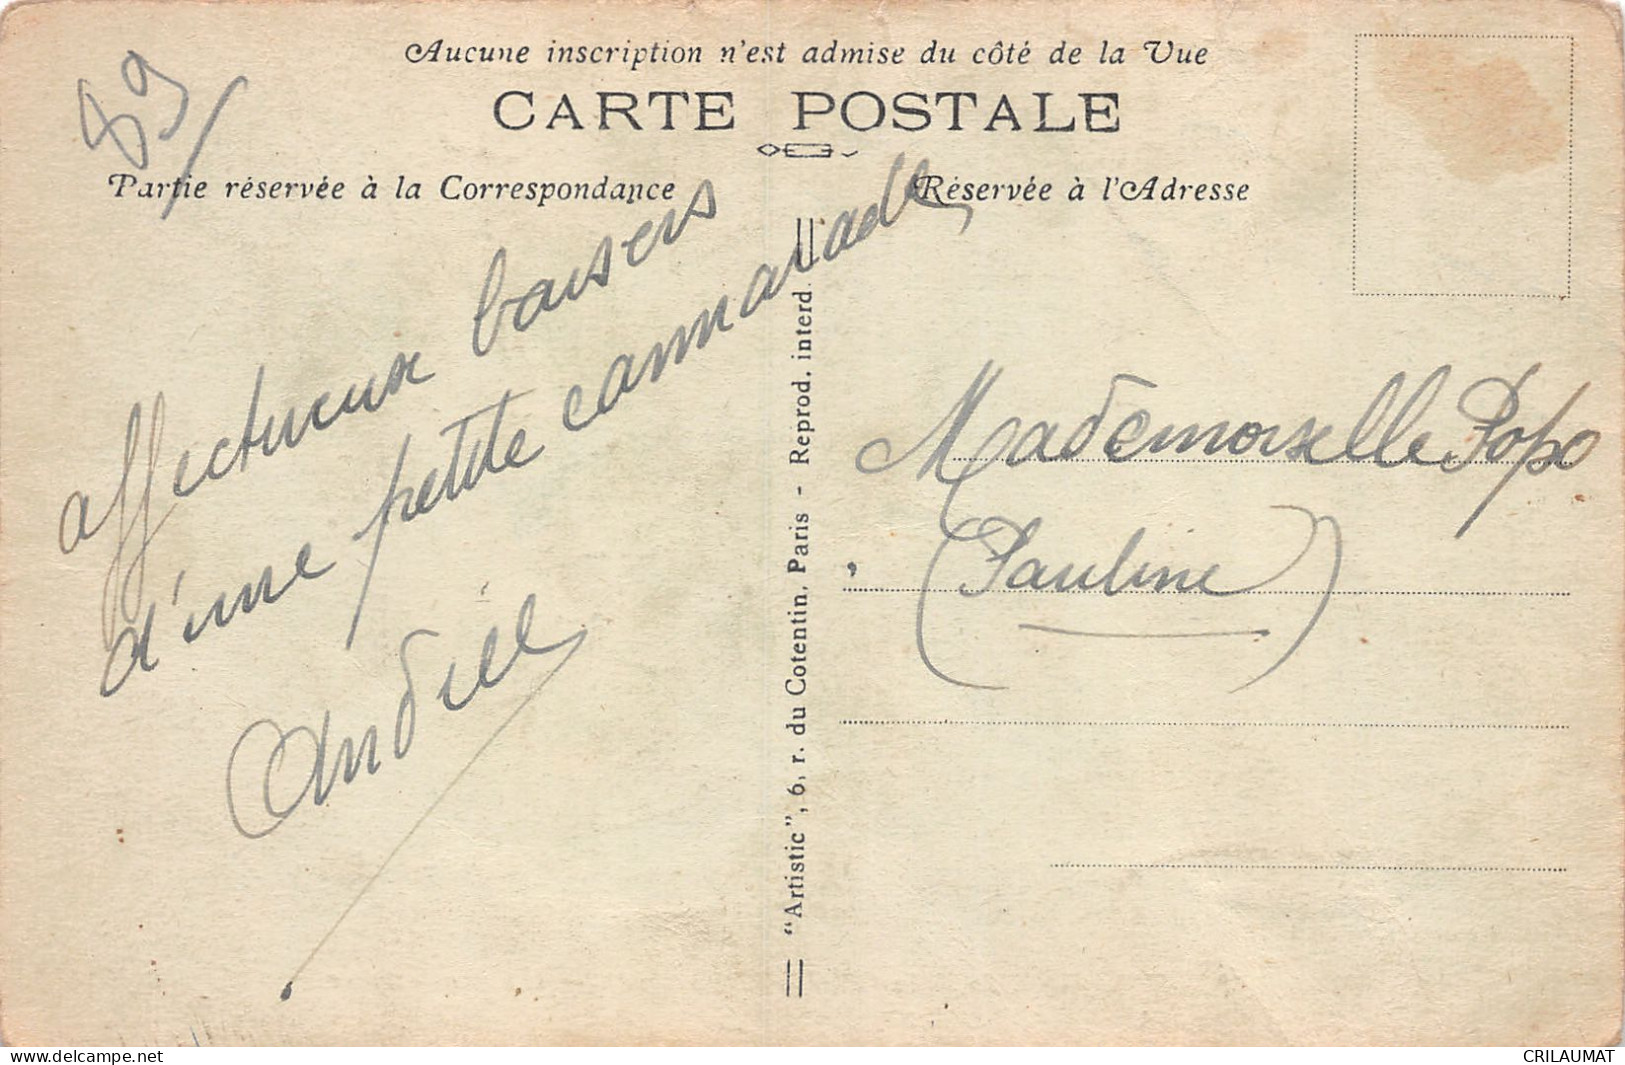 Aucune inscription n'est admise du côté de la Vue
CARTE POSTALE
89
Partie réservée à la Correspondance
Réservée à l'Adresse
affectueux baisers
d'une petite cammarade
Andrée
"Artistic", 6, r. du Cotentin, Paris - Reprod. interd.
Mademoiselle Popo
(Pauline)
delcampe.net
CRILAUMAT